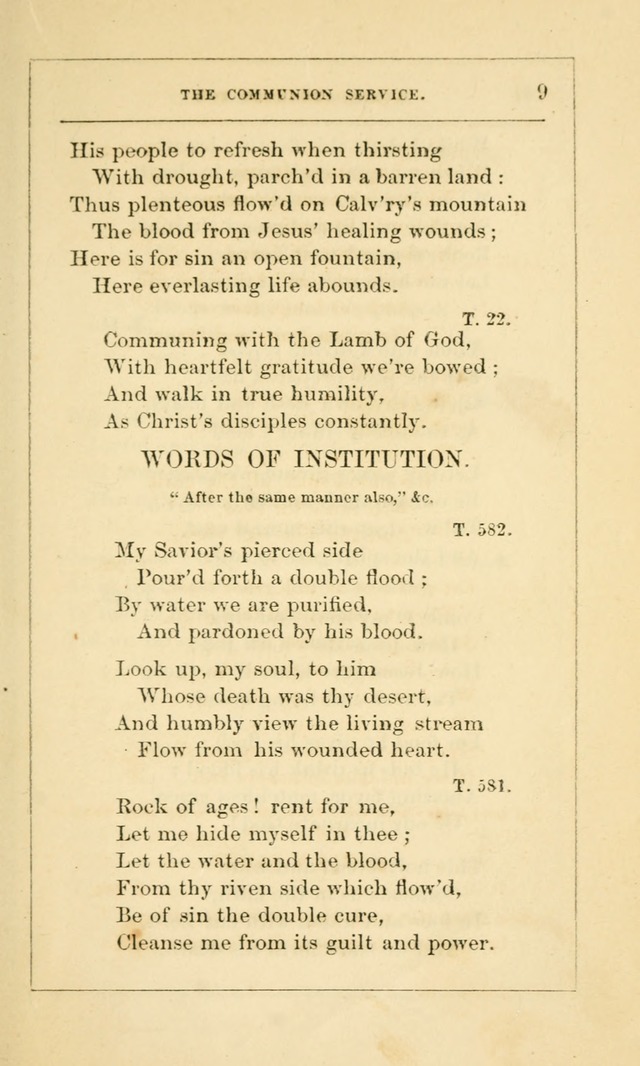 THE COMMUNION SERVICE. 9
His people to refresh when thirsting
With drought, parch'd in a barren land :
Thus plenteous flow'd on Calv'ry's mountain
The blood from Jesus' healing wounds ;
Here is for sin an open fountain,
Here everlasting life abounds.
T. 22.
Communing with the Lamb of God,
With heartfelt gratitude we're bowed ;
And walk in true humility,
As Christ's disciples constantly.
WORDS OF INSTITUTION.
“ After the same manner also,” &c.
T. 582.
My Savior's pierced side
Pour'd forth a double flood ;
By water we are purified,
And pardoned by his blood.
Look up, my soul, to him
Whose death was thy desert,
And humbly view the living stream
Flow from his wounded heart.
T. 581.
Rock of ages ! rent for me,
Let me hide myself in thee ;
Let the water and the blood,
From thy riven side which flow'd,
Be of sin the double cure,
Cleanse me from its guilt and power.